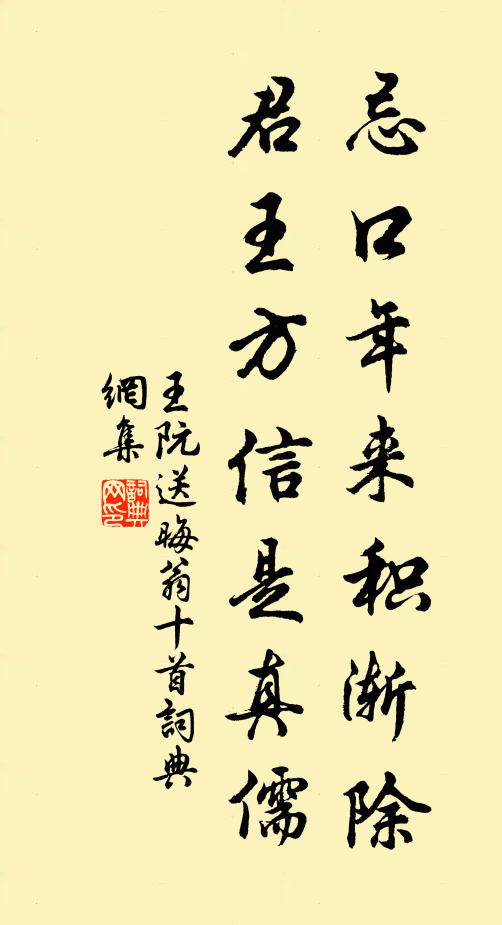 忌口年来积渐除
君王方信是真儒
王阮送晦翁十首詞典
網集
詞典
网印